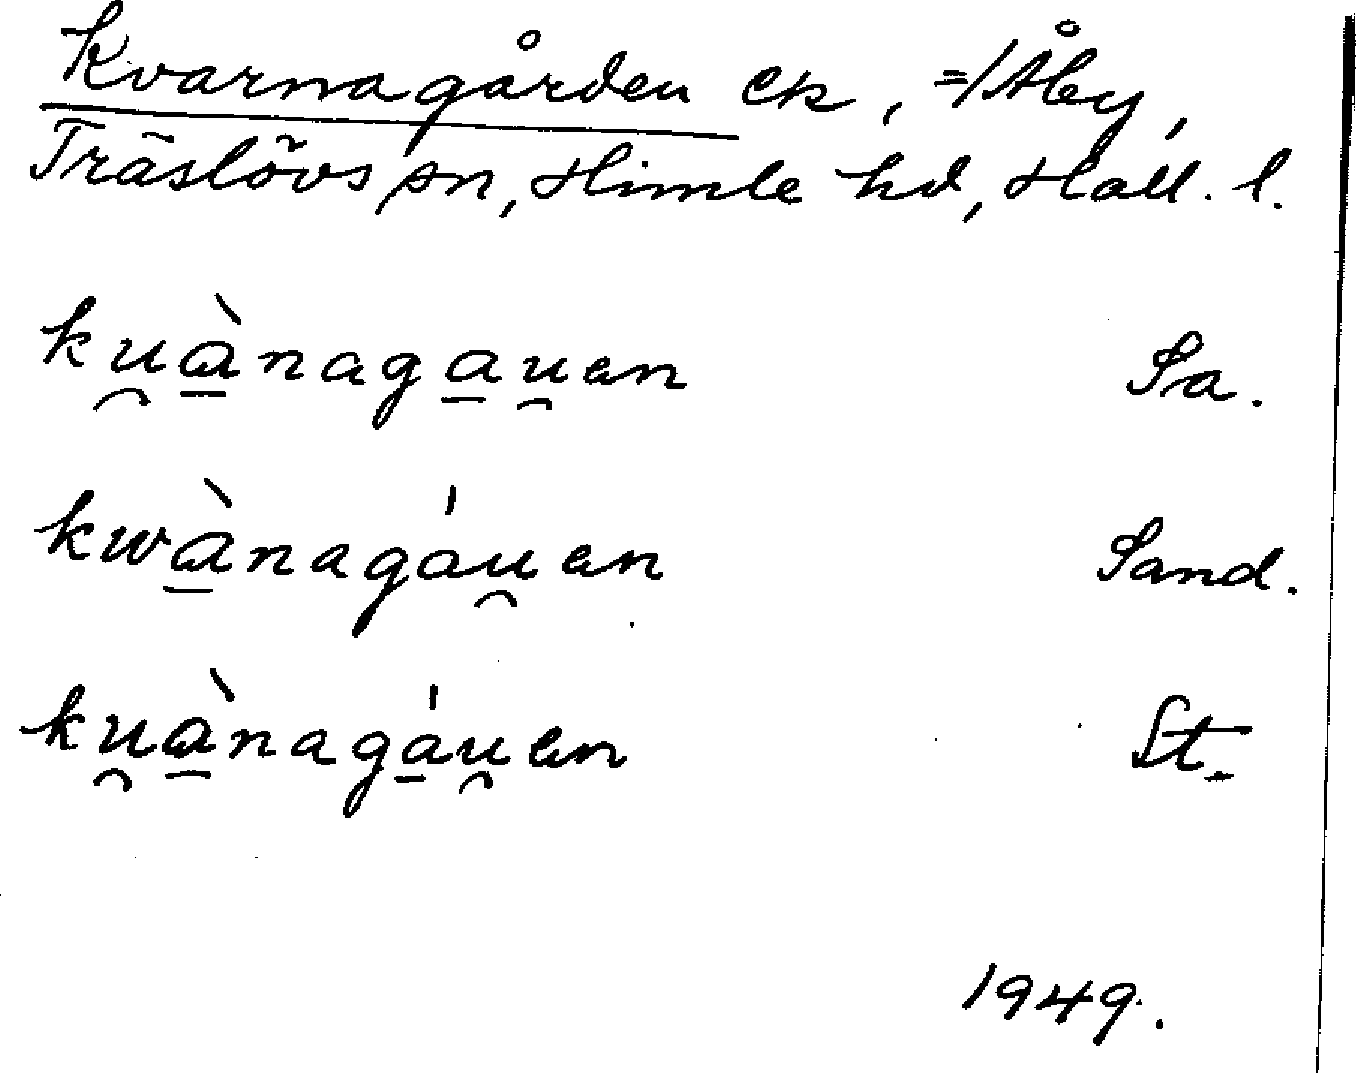 Kvarnagården ek, =/Åby,
Träslövs sn, Himle hd, Hall. l.
ku̯à̱naga̱u̯en Sa.
kwà̱nagáu̯en Sand.
ku̯à̱nagá̱u̯en St.
1949.